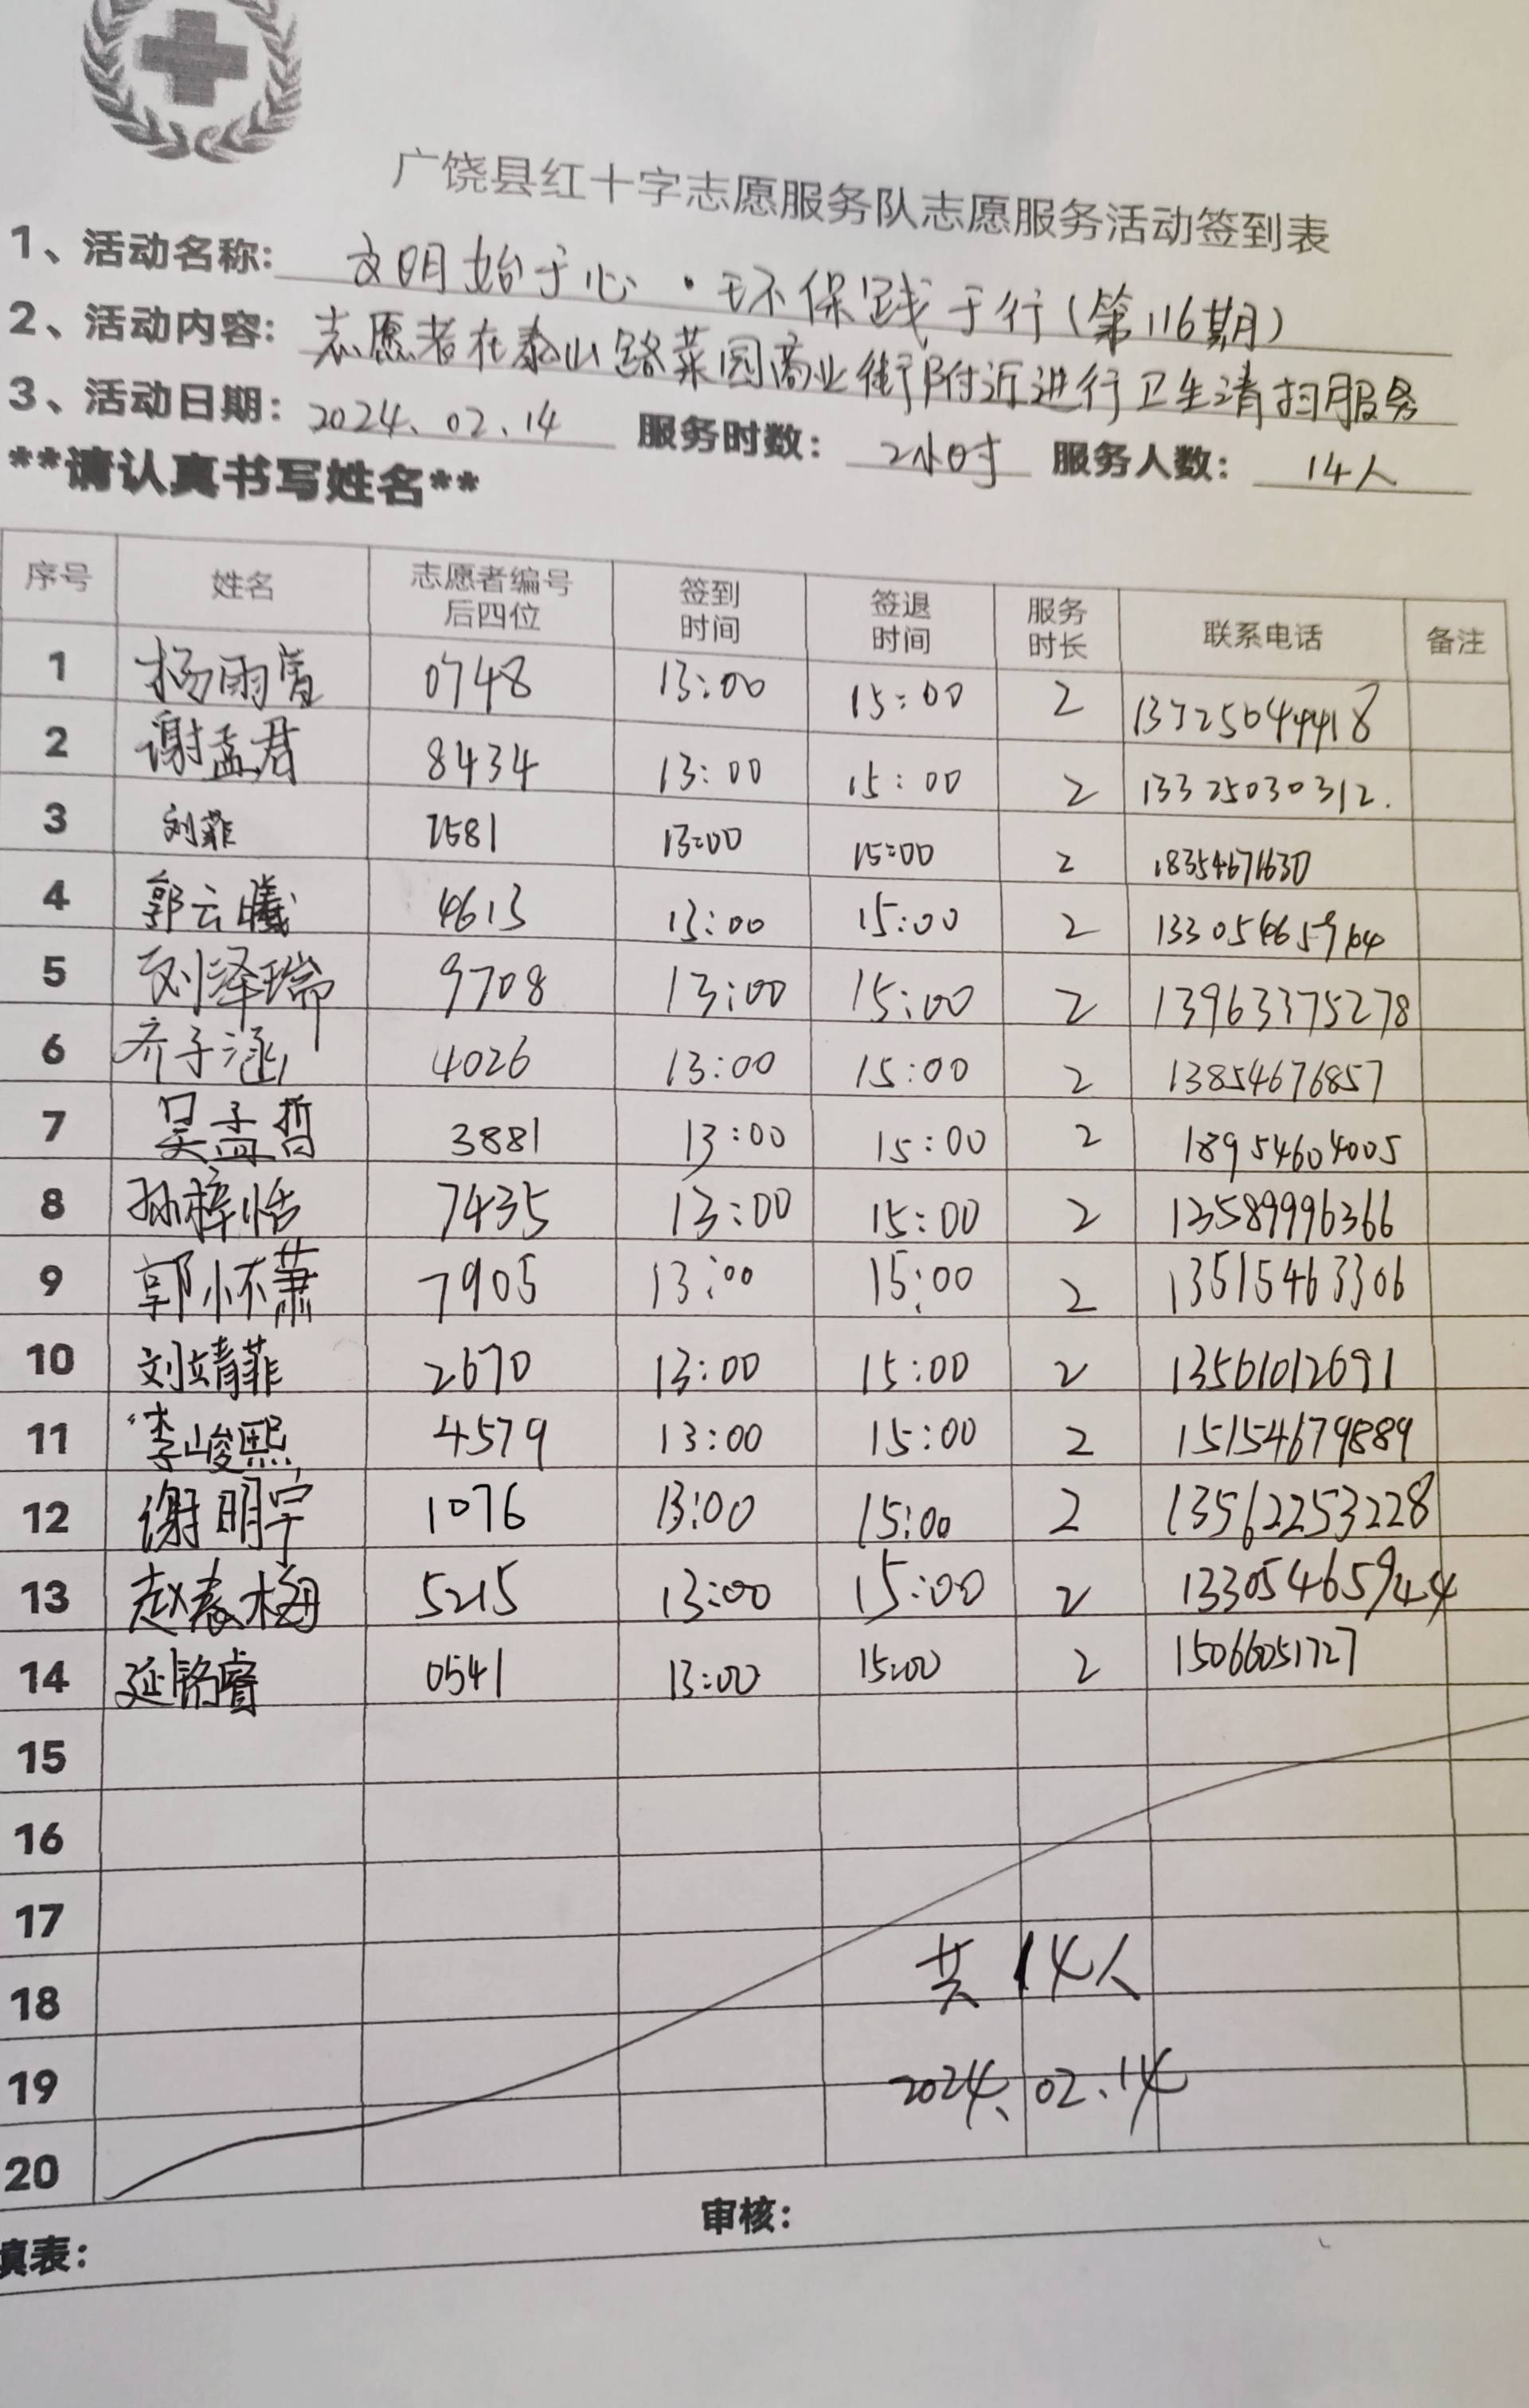 广饶县红十字志愿服务队志愿服务活动签到表
1、活动名称: 文明始于心·环保践于行(第116期)
2、活动内容: 志愿者在泰山路菜园商业街附近进行卫生清扫服务
3、活动日期: 2024.02.14 服务时数: 2小时 服务人数: 14人
**请认真书写姓名**
序号 姓名 志愿者编号后四位 签到时间 签退时间 服务时长 联系电话 备注
1 杨雨 0748 13:00 15:00 2
2 谢孟君 8434 13:00 15:00 2 13325030312.
3 刘菲 2581 13:00 15:00 2 18354671630
4 郭云曦 4613 13:00 15:00 2
5 刘泽瑞 9708 13:00 15:00 2 13963375278
6 齐子涵 4026 13:00 15:00 2 13854676857
7 吴孟哲 3881 13:00 15:00 2 18954604005
8 孙梓恬 7435 13:00 15:00 2 13589996366
9 郭怀萧 7905 13:00 15:00 2 13515463306
10 刘靖菲 2670 13:00 15:00 2 13561012691
11 李峻熙 4579 13:00 15:00 2 15154679889
12 谢明宇 1076 13:00 15:00 2 13562253228
13 赵春梅 5215 13:00 15:00 2 13305465944
14 延铭睿 0541 13:00 15:00 2 15066051727
15
16
17
18 共14人
19 2024.02.14
20
填表: 审核: